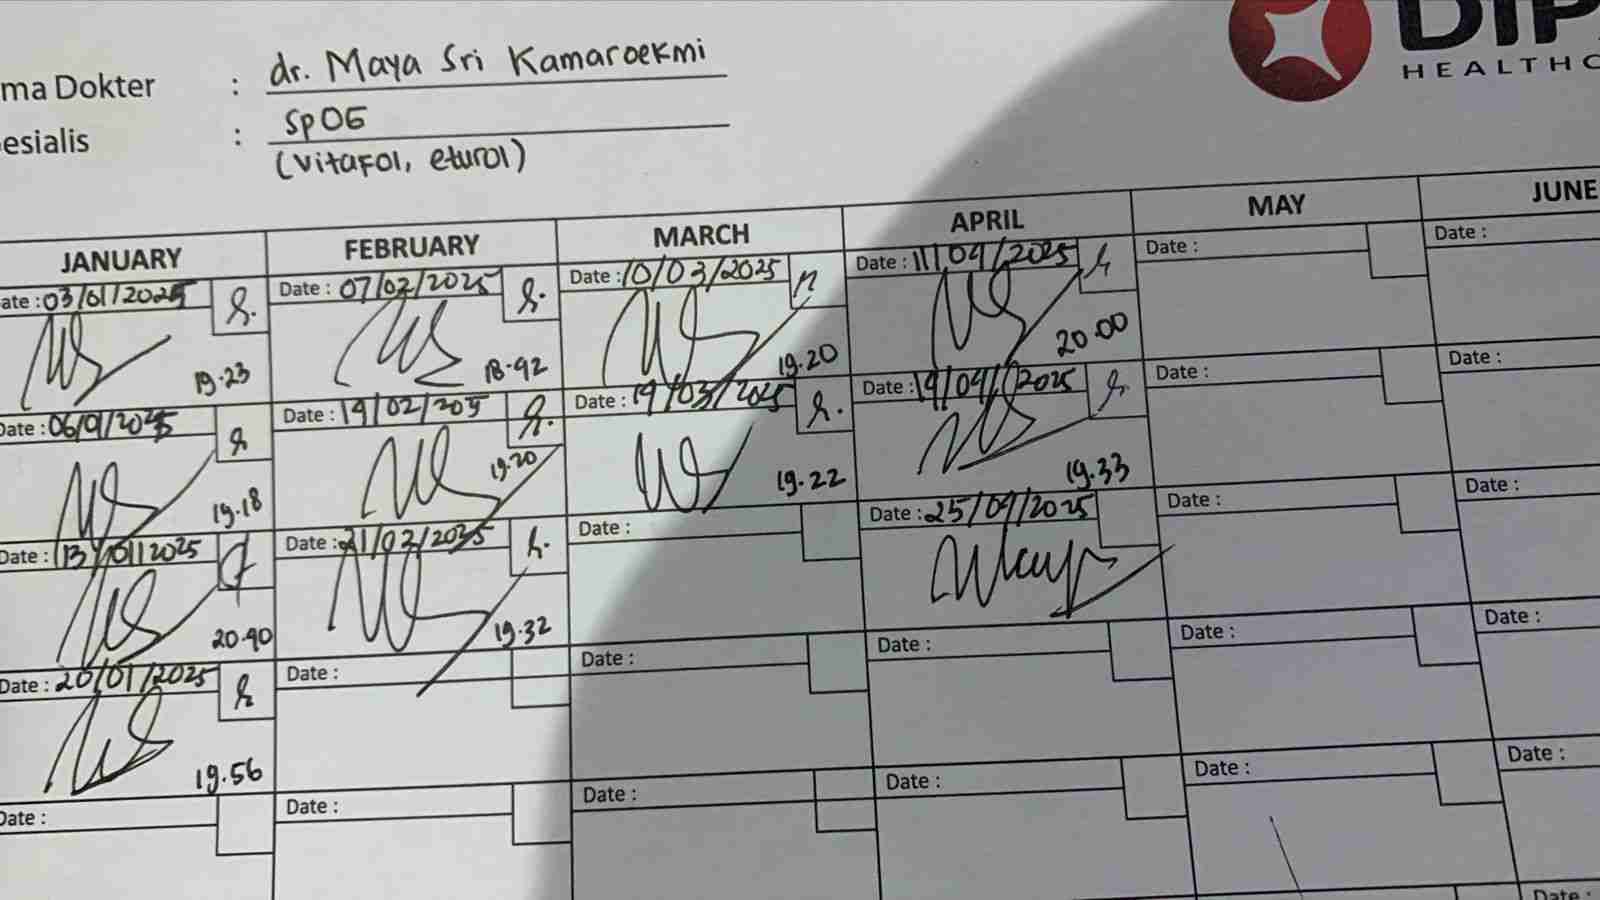 ma Dokter : dr. Maya Sri Kamaroekmi
esialis : SpOG
(vitafol, eturol)
DIP
HEALTHC
JANUARY FEBRUARY MARCH APRIL MAY JUNE
ate : 03/01/2025 Date : 07/02/2025 Date : 10/03/2025 Date : 11/04/2025 Date : Date :
19.23 18.42 19.20 20.00
Date : 06/01/2025 Date : 14/02/205 Date : 19/03/2025 Date : 19/04/2025 Date : Date :
19.18 19.20 19.22 19.33
Date : 13/01/2025 Date : 21/02/2025 Date : Date : 25/04/2025 Date : Date :
20.40 19.32
Date : 20/01/2025 Date : Date : Date : Date : Date :
19.56
Date : Date : Date : Date : Date : Date :
Date :